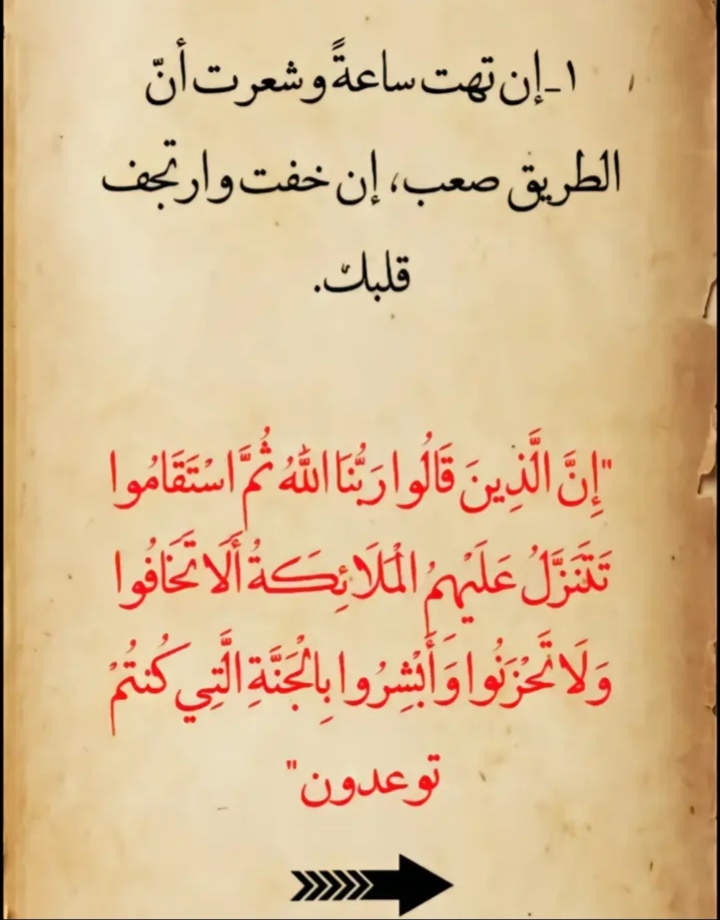 ١ـ إن تهت ساعةً وشعرت أنّ
الطريق صعب، إن خفت وارتجف
قلبك.
"إِنَّ الَّذِينَ قَالُوا رَبُّنَا اللَّهُ ثُمَّ اسْتَقَامُوا
تَتَنَزَّلُ عَلَيْهِمُ الْمَلَائِكَةُ أَلَّا تَخَافُوا
وَلَا تَحْزَنُوا وَأَبْشِرُوا بِالْجَنَّةِ الَّتِي كُنتُمْ
توعدون"